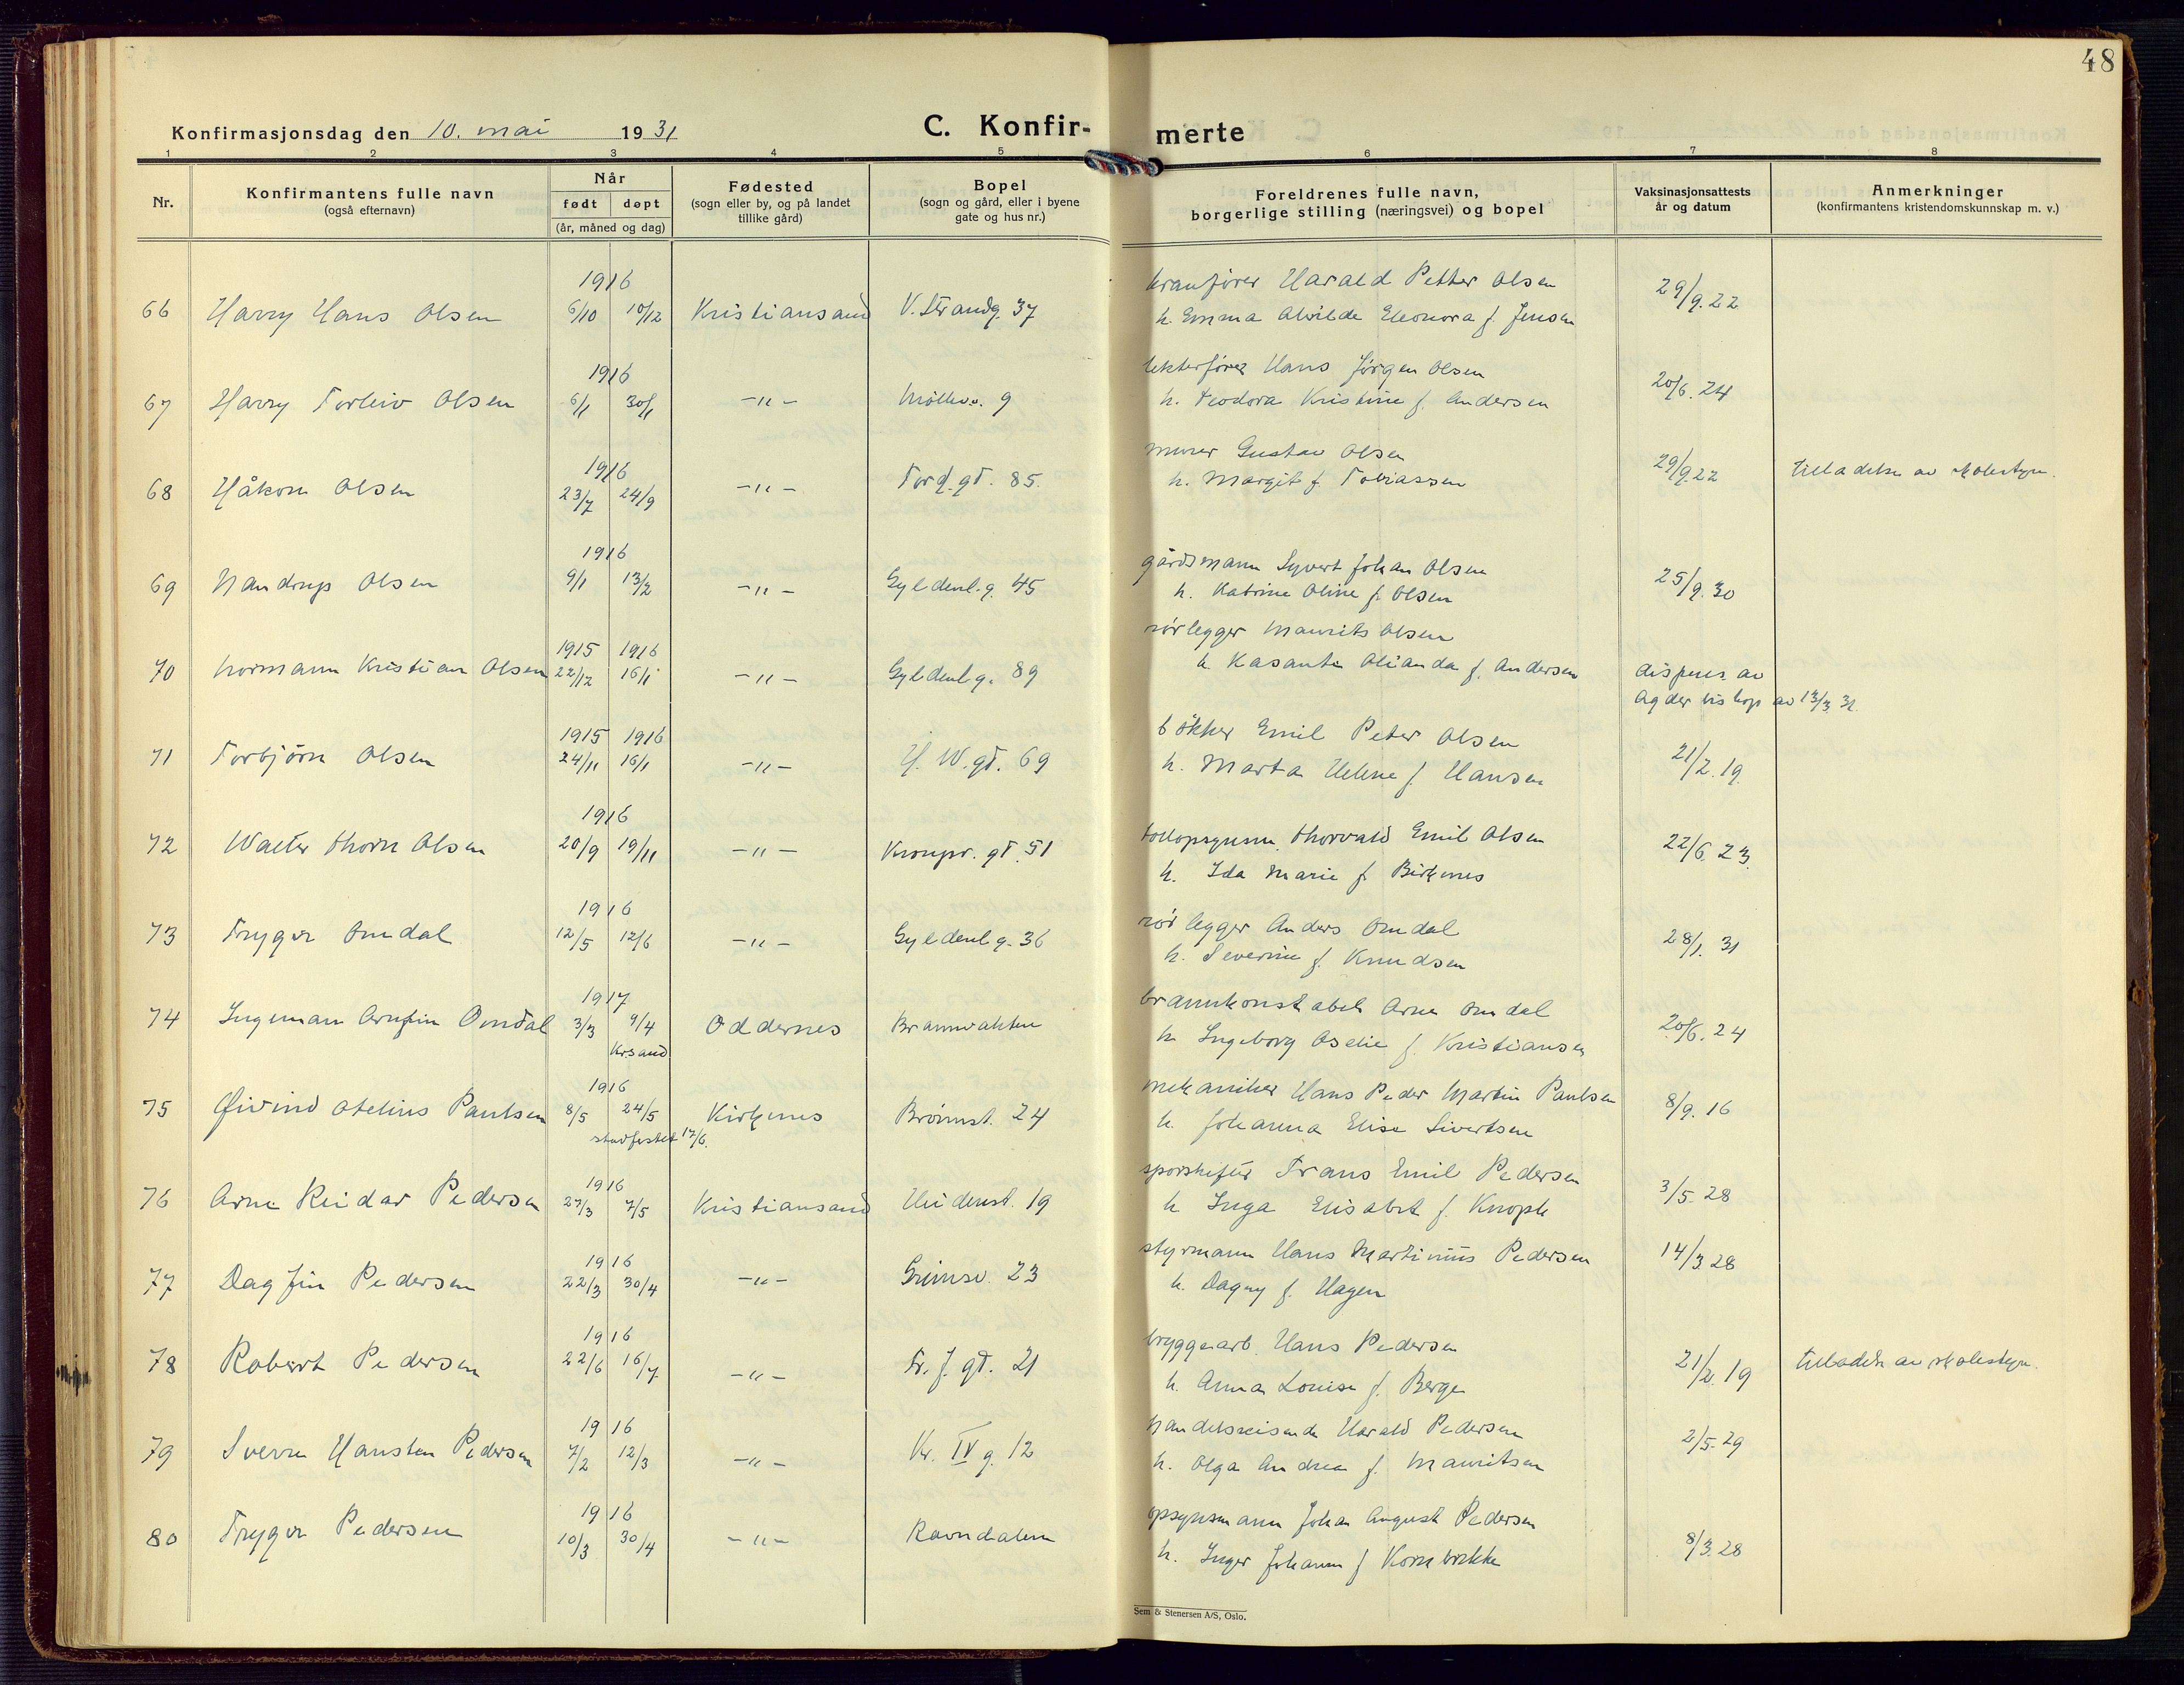 48
Konfirmasjonsdag den 10. mai 1931
C. Konfirmerte
1 2 3 4 5 6 7 8
Nr.
Konfirmantens fulle navn
(også efternavn)
Når
født døpt
(år, måned og dag)
Fødested
(sogn eller by, og på landet
tillike gård)
Bopel
(sogn og gård, eller i byene
gate og hus nr.)
Foreldrenes fulle navn,
borgerlige stilling (næringsvei) og bopel
Vaksinasjonsattests
år og datum
Anmerkninger
(konfirmantens kristendomskunnskap m. v.)
1916
66 Harry Hans Olsen 6/10 10/12 Kristiansand V. Strandg. 37
kranfører Harald Petter Olsen
h. Emma Alvilde Eleonora f. Jensen
29/9.22
1916
67 Harry Torleiv Olsen 6/1 30/1 -"- Møllev. 9
lekterfører Hans Jørgen Olsen
h. Teodora Kristine f. Andersen
20/6.24
1916
68 Håkon Olsen 23/7 24/9 -"- Tord.gt. 85.
murer Gustav Olsen
h. Margit f. Tobiassen
29/9.22 tilladelse av skolestyr.
1916
69 Nandrup Olsen 9/1 13/2 -"- Gyldenl.g. 45
gårdsmann Syvert Johan Olsen
h. Katrine Oline f. Olsen
25/9.30
1915 1916
70 Normann Kristian Olsen 22/12 16/1 -"- Gyldenl.g. 89
rørlegger Maurits Olsen
h. Kasanta Olianda f. Andersen
dispens. av
Agder biskop av 13/3.31.
1915 1916
71 Torbjørn Olsen 24/11 16/1 -"- H. W.gt. 69
bøkker Emil Peter Olsen
h. Marta Helene f. Hansen
21/2.19.
1916
72 Walter Thorn Olsen 20/9 19/11 -"- Kronpr.gt. 51
tollopsynsm. Thorvald Emil Olsen
h. Ida Marie f. Birkenes
22/6.23.
1916
73 Trygve Omdal 12/5 12/6 -"- Gyldenl.g. 36
rørlegger Anders Omdal
h. Severine f. Knudsen
28/1.31
1917
74 Ingeman Arnfin Omdal 3/3 9/4 Oddernes Brannvakten
Krsand
brannkonstabel Arne Omdal
h. Ingeborg Aselie f. Kristiansen
20/6.24
1916
75 Øivind Otelius Paulsen 8/5 24/5 Kirkenes Brønnst. 24
stadfestet 17/6.
mekaniker Hans Peder Martin Paulsen
h. Johanna Elise Sivertsen
8/9.16
1916
76 Arne Reidar Pedersen 27/3 7/5 Kristiansand Heidenst. 19
sporskifter Frans Emil Pedersen
h. Inga Elisabet f. Knoph
3/5.28
1916
77 Dagfin Pedersen 22/3 30/4 -"- Grimsv. 23
styrmann Hans Martinius Pedersen
h. Dagny f. Hagen
14/3.28
1916
78 Robert Pedersen 22/6 16/7 -"- Fr. f. gt. 21
bryggearb. Hans Pedersen
h. Anna Louise f. Berge
21/2.19 tilladelse av skolestyr.
1916
79 Sverre Hansten Pedersen 7/2 12/3 -"- Kr. IV g. 12
handelsreisende Harald Pedersen
h. Olga Andrea f. Mauritsen
2/5.29
1916
80 Trygve Pedersen 10/3 30/4 -"- Ravndalen
opsynsmann Johan August Pedersen
h. Inger Johanne f. Kornbrekke
8/3.28
Sem & Stenersen A/S, Oslo.